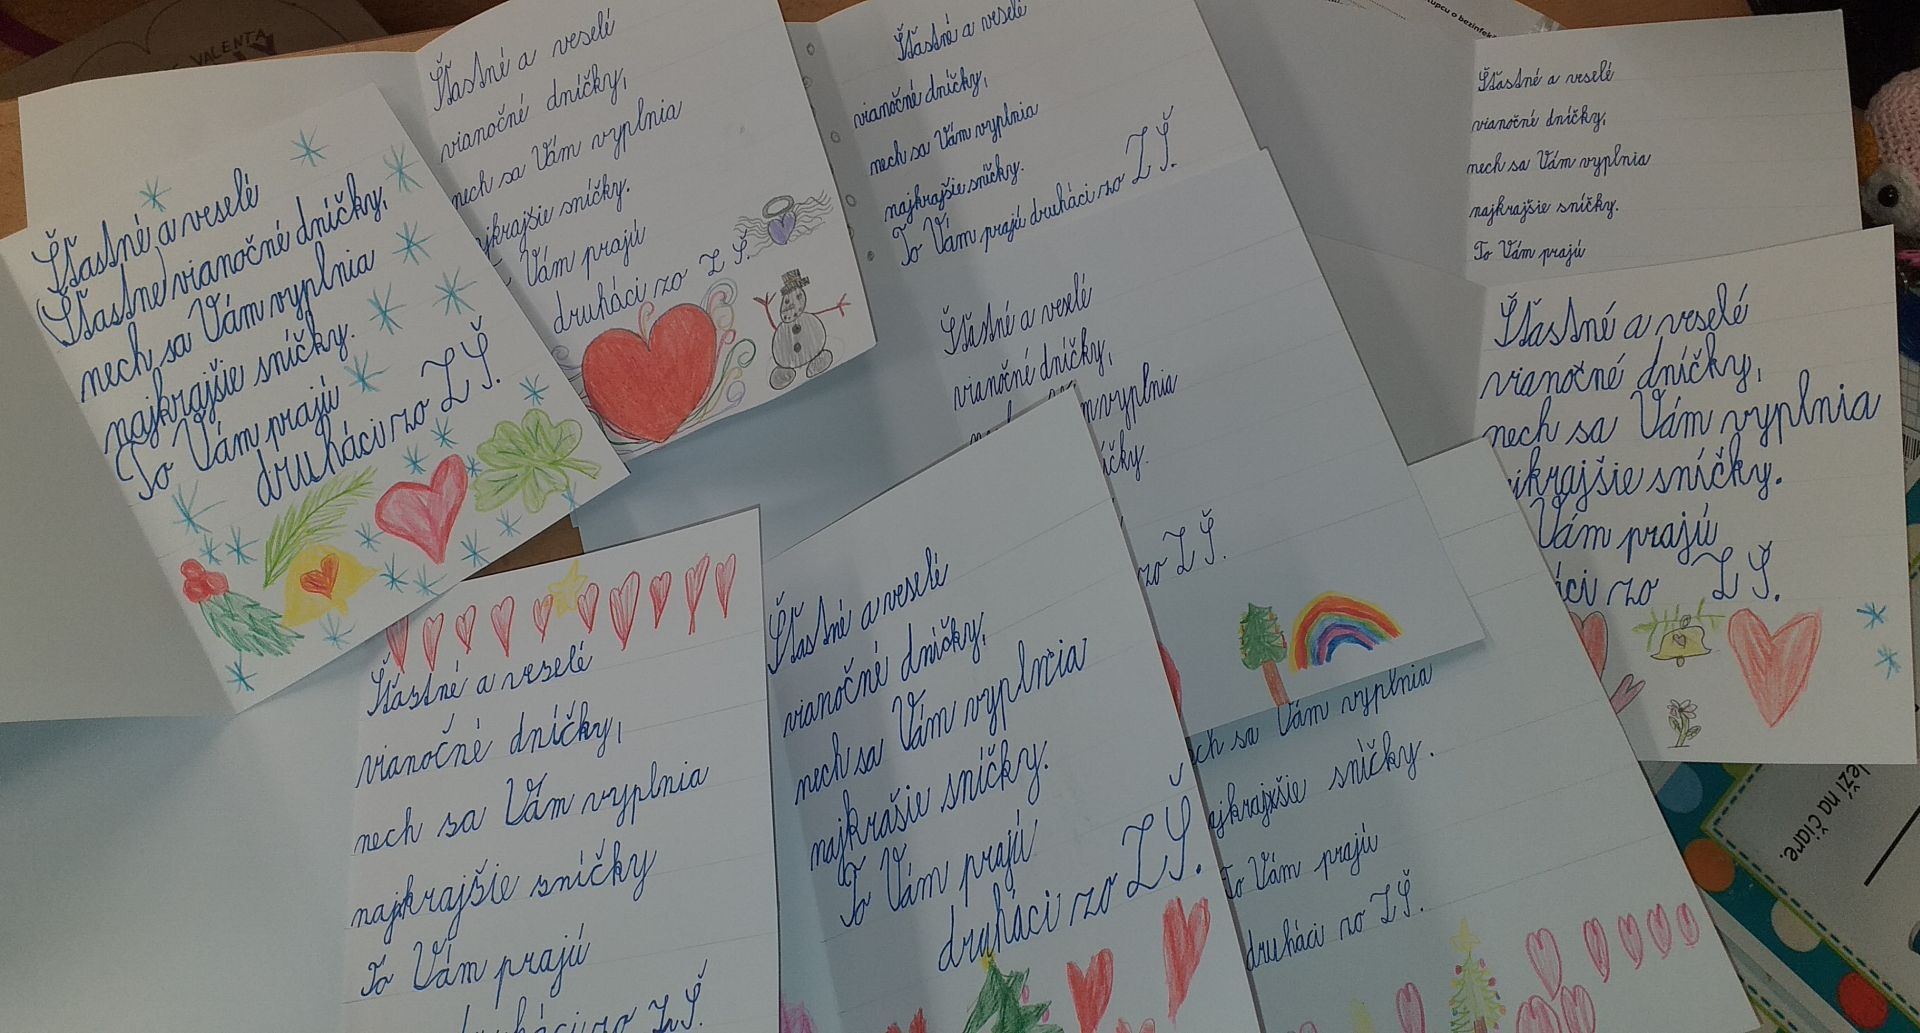 VALENTA
Šťastné a veselé
(Šťastne) vianočné dníčky,
nech sa Vám vyplnia
najkrajšie sníčky.
To Vám prajú
druháci zo ZŠ.
Šťastné a veselé
vianočné dníčky,
nech sa Vám vyplnia
ajkrajšie sníčky.
Vám prajú
druháci zo ZŠ.
Šťastné a veselé
vianočné dníčky,
nech sa Vám vyplnia
najkrajšie sníčky.
To Vám prajú druháci zo ZŠ.
Šťastné a veselé
vianočné dníčky,
nech sa Vám vyplnia
najkrajšie sníčky.
To Vám prajú
Šťastné a veselé
vianočné dníčky,
vyplnia
íčky.
zo ZŠ.
Šťastné a veselé
vianočné dníčky,
nech sa Vám vyplnia
ajkrajšie sníčky.
Vám prajú
áci zo ZŠ.
Šťastné a veselé
vianočné dníčky,
nech sa Vám vyplnia
najkrajšie sníčky
To Vám prajú
druháci zo ZŠ.
Šťastné a veselé
vianočné dníčky,
nech sa Vám vyplnia
najkrašie sníčky.
To Vám prajú
druháci zo ZŠ.
ech sa Vám vyplnia
ajkrajšie sníčky.
To Vám prajú
druháci zo ZŠ.
leží na čiare.